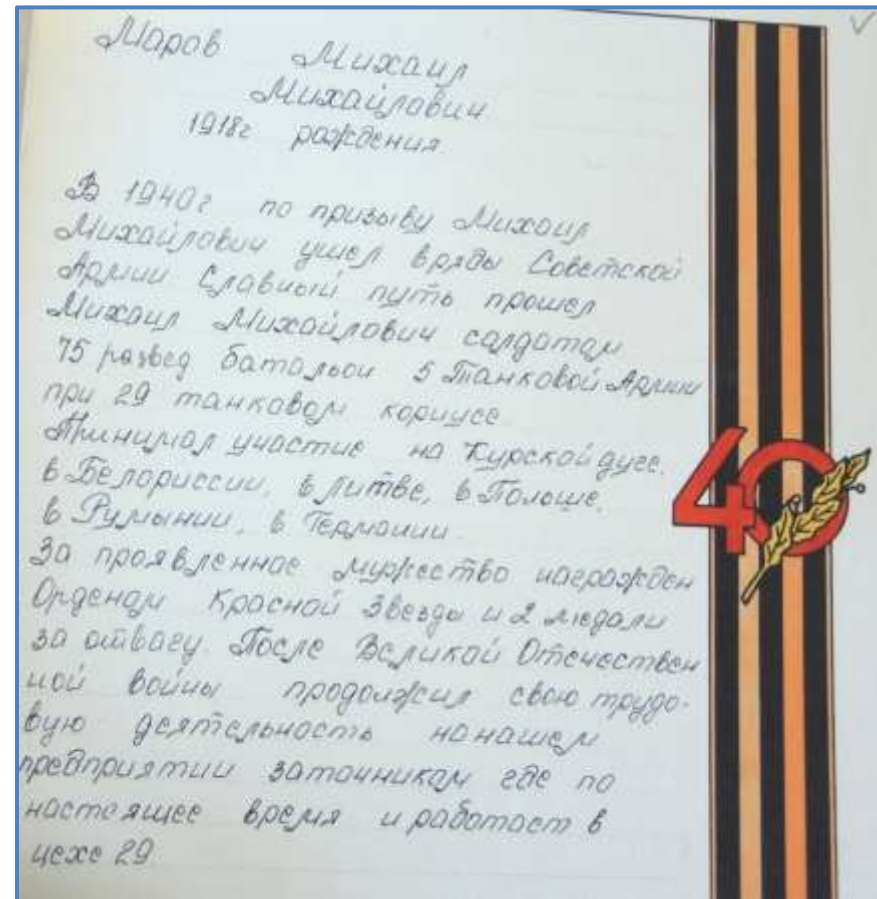 Маров Михаил
Михайлович
1918г рождения
В 1940г по призыву Михаил
Михайлович ушел в ряды Советской
Армии Славный путь прошел
Михаил Михайлович солдатом
75 развед батальон 5 Танковой Армии
при 29 танковом корпусе.
Принимал участие на Курской дуге,
в Белориссии, в Литве, в Польше,
в Румынии, в Германии
За проявленное мужество награжден
Орденом Красной Звезды и 2 медали
за отвагу. После Великой Отечествен
ной войны продолжил свою трудо-
вую деятельность на нашем
предприятии заточником где по
настоящее время и работает в
цехе 29
40